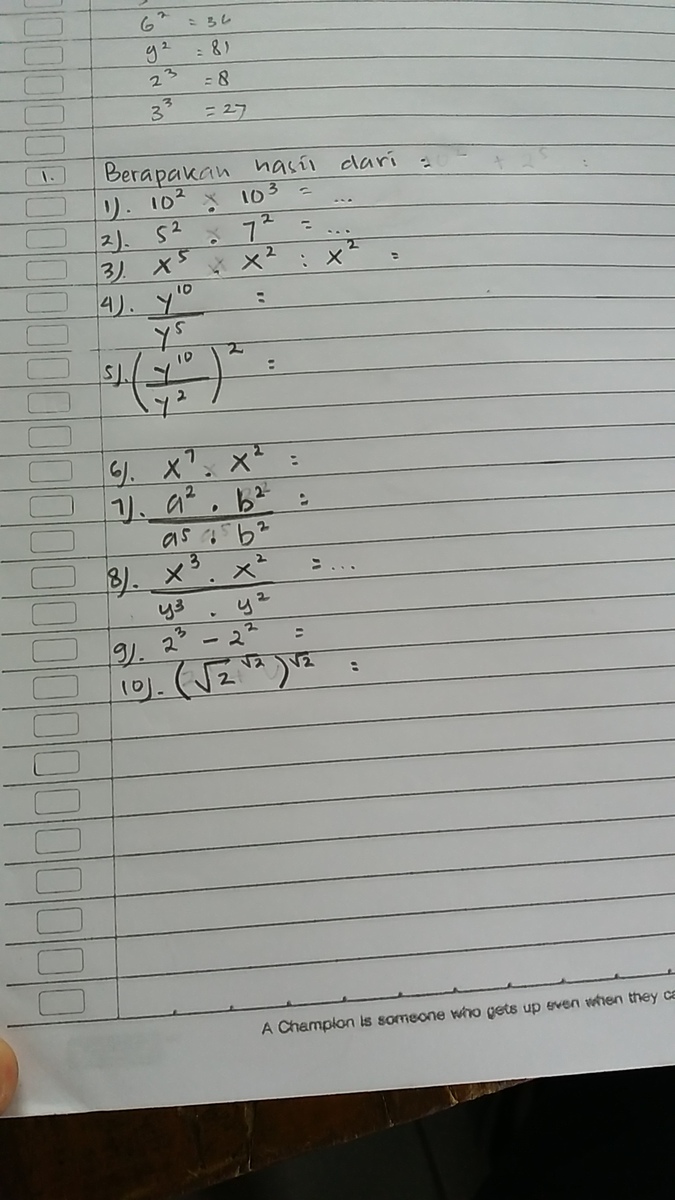 6² = 36
9² = 81
2³ = 8
3³ = 27
1. Berapakah hasil dari =
1). 10² . 10³ = ...
2). 5² . 7² = ...
3). x⁵ . x² : x² =
4). y¹⁰ =
y⁵
5). (y¹⁰)² =
y²
6). x⁷ . x² =
7). a² . b² =
a⁵ . b²
8). x³ . x² = ...
y³ . y²
9). 2³ - 2² =
10). (√2^√2)^√2 =
A Champion is someone who gets up even when they